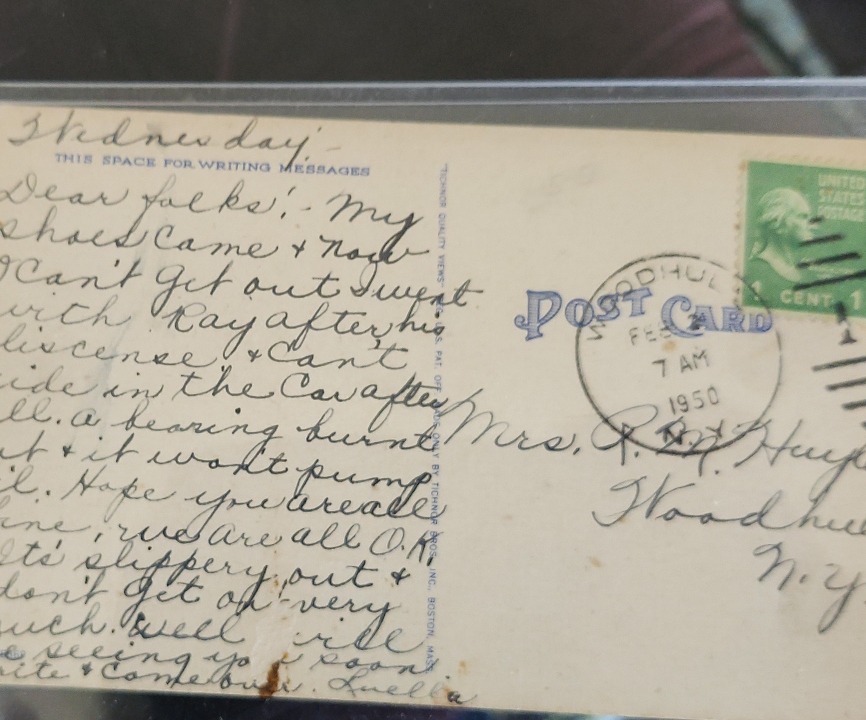 Wednesday -
THIS SPACE FOR WRITING MESSAGES
Dear folks! - My
shoes came & now
I can't get out I went
with Ray after his
liscense & can't
ride in the Car after
all. a bearing burnt
out & it won't pump
oil. Hope you are all
fine, we are all O.K.
It's slippery out &
don't get out very
much. Well will
be seeing you soon
write & come over. Luella
"TICHNOR QUALITY VIEWS" REG. U.S. PAT. OFF. MADE ONLY BY TICHNOR BROS., INC., BOSTON, MASS.
POST CARD
UNITED
STATES
POSTAGE
1 CENT 1
WOODHULL
FEB
7 AM
1950
N.Y.
Mrs. R. M.
Woodhull
N.Y.